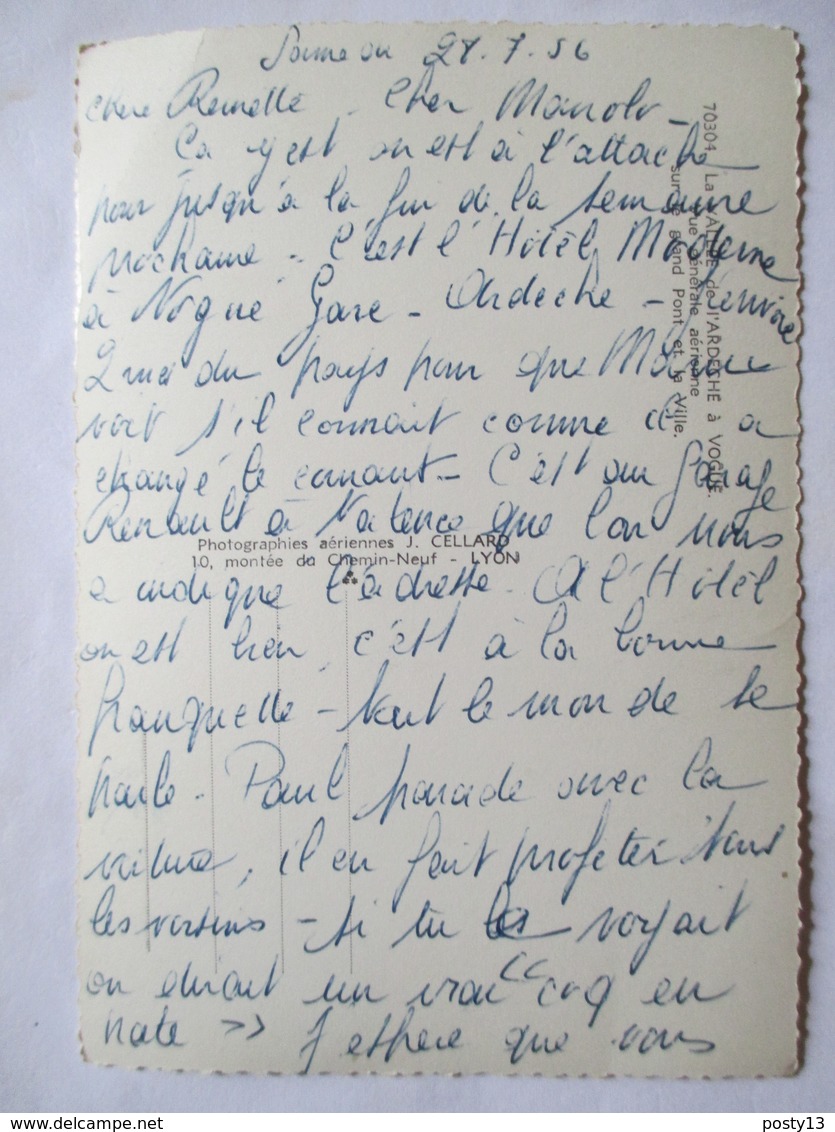 28.7.56
Chère Remette - Cher Manolo -
Ca y est on est à l'attache
pour jusqu'à la fin de la semaine
prochaine - C'est l'Hôtel Moderne
à Vogué Gare - Ardèche -
du pays pour que
voit s'il connait comme il a
changé le
C'est un garage
Renault à Valence que l'on nous
a indiqué l'adresse. A l'Hôtel
on est bien, c'est à la bonne
franquette - tout le monde se
parle - Paul parade avec la
voiture, il en fait profiter tous
les voisins - si tu le voyait
on dirait un vrai "coq en
pate" J'espère que vous
70304. La VALLEE de l'ARDECHE à VOGUE.
Vue générale aérienne
sur le grand Pont et la Ville.
Photographies aériennes J. CELLARD
10, montée du Chemin-Neuf - LYON
posty13